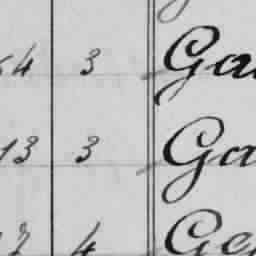 64 3 Ga
13 3 Ga
4 Ge